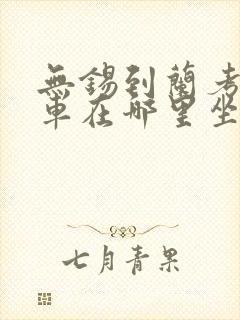 無錫到蘭考
車在哪里坐
七月青果